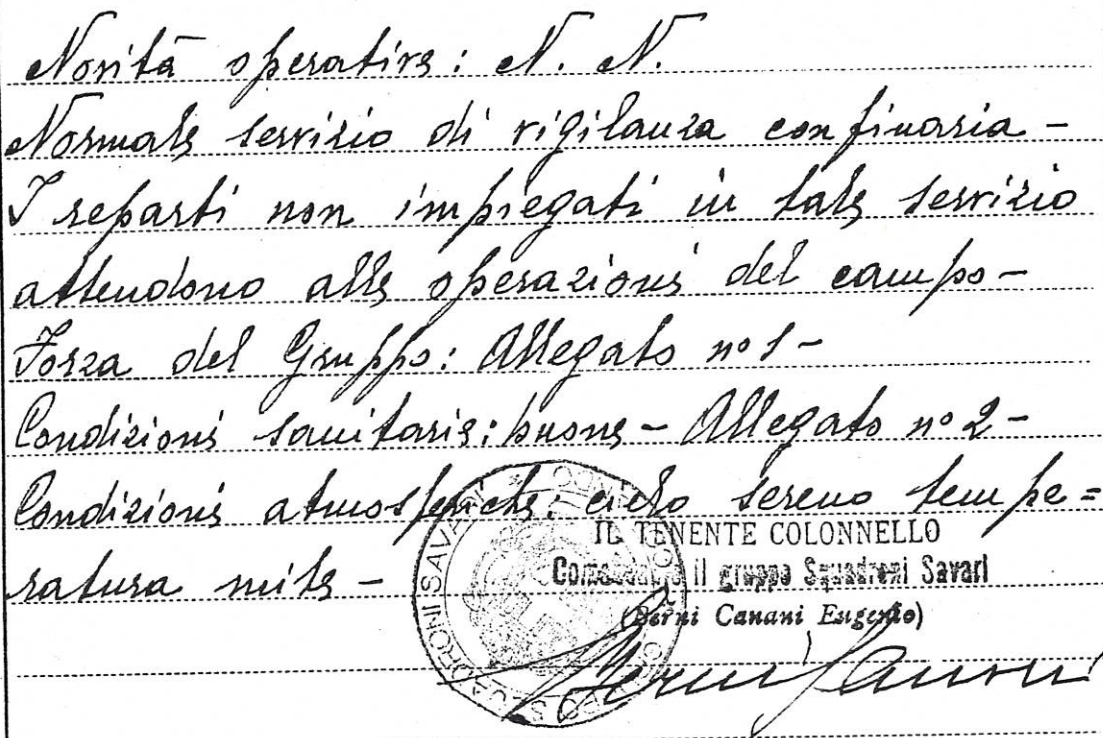 Novità operative: N. N.
Normale servizio di vigilanza confinaria -
I reparti non impiegati in tale servizio
attendono alle operazioni del campo -
Forza del Gruppo: Allegato n° 1 -
Condizioni sanitarie: buone - Allegato n° 2 -
Condizioni atmosferiche: cielo sereno tempe=
ratura mite -
IL TENENTE COLONNELLO
Comandante il gruppo Squadroni Savari
(Berni Canani Eugenio)
SQUADRONI SAVARI
Berni Canani